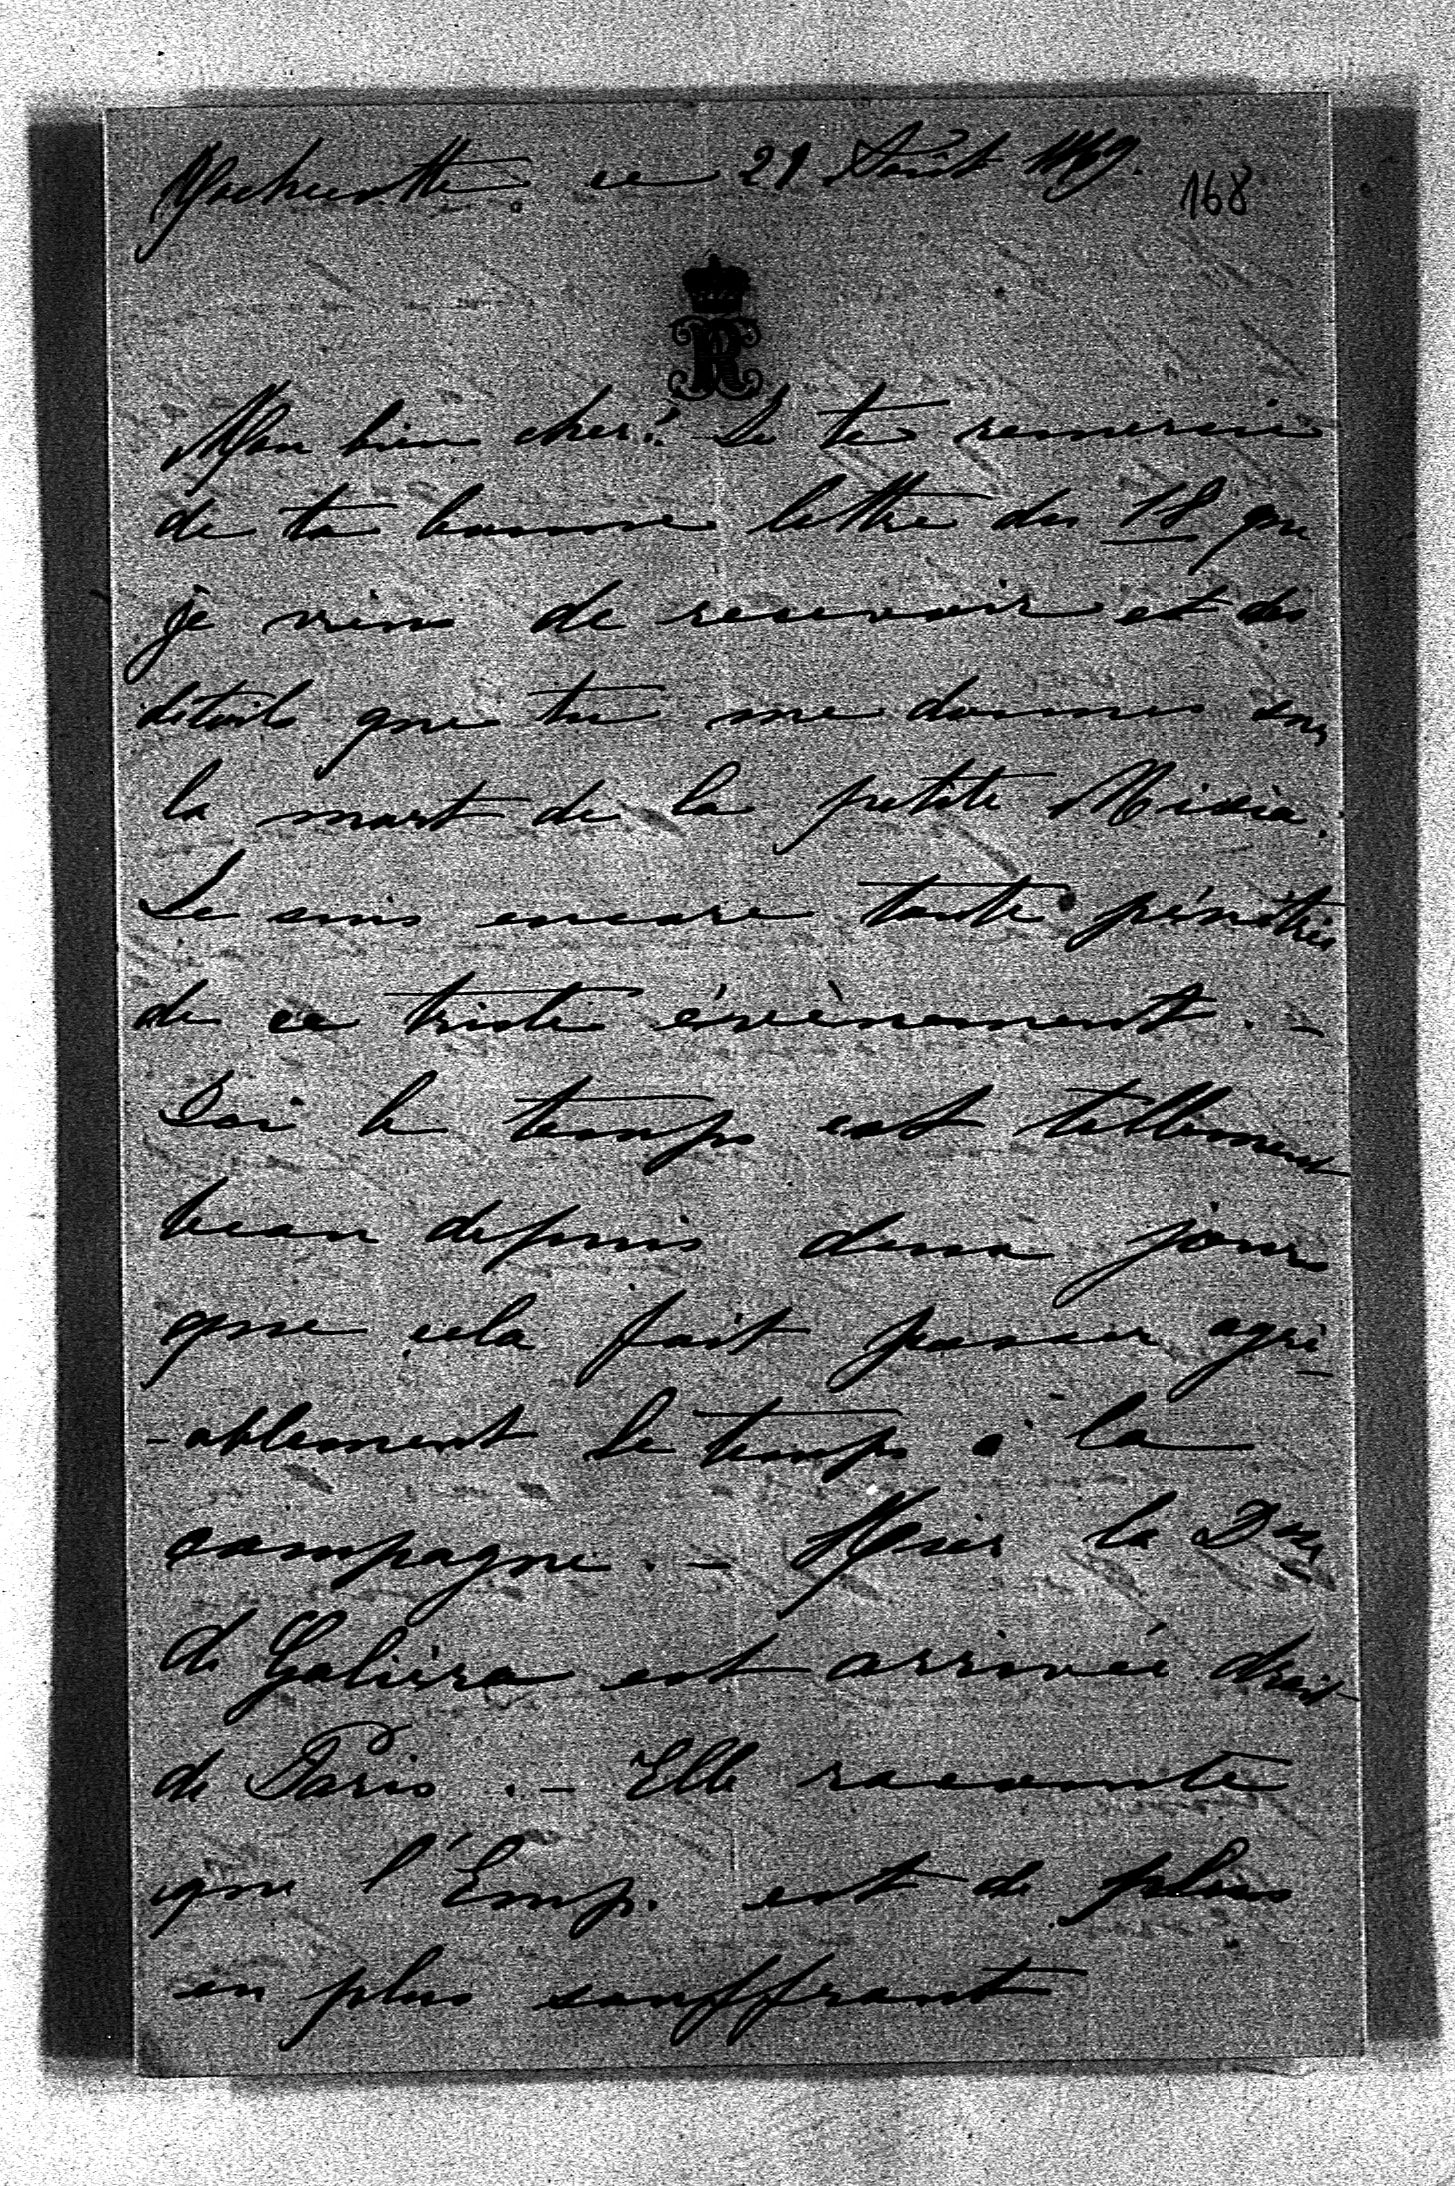 ce 21 Août 1869.
168
R
Mon bien cher! Je te remercie
de ta bonne lettre du 18 que
je viens de recevoir et des
détails que tu me donnes sur
la mort de la petite
Je suis encore toute pénétrée
de ce triste évènement. –
Ici le temps est tellement
beau depuis deux jours
que cela fait passer agré-
-ablement le temps à la
campagne. – Hier la Dsse
de Galièra est arrivée droit
de Paris. – Elle raconte
que l'Emp. est de plus
en plus souffrant